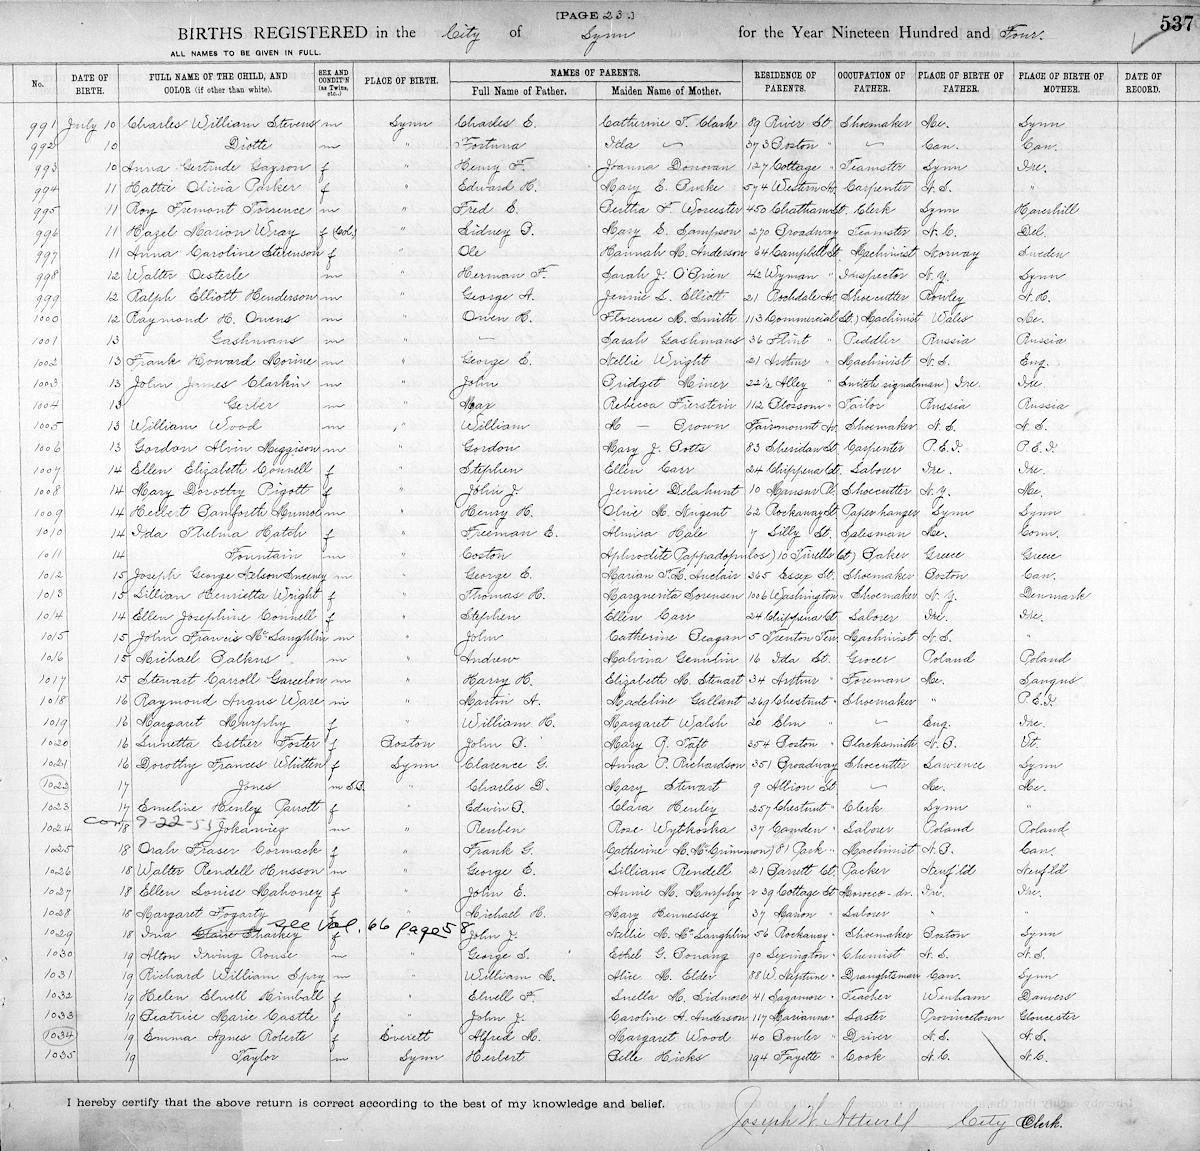 [PAGE 23.]
537
BIRTHS REGISTERED in the City of Lynn for the Year Nineteen Hundred and Four.
ALL NAMES TO BE GIVEN IN FULL.
No. DATE OF BIRTH. FULL NAME OF THE CHILD, AND COLOR (if other than white). SEX AND CONDIT'N (as Twins, etc.) PLACE OF BIRTH. NAMES OF PARENTS. Full Name of Father. Maiden Name of Mother. RESIDENCE OF PARENTS. OCCUPATION OF FATHER. PLACE OF BIRTH OF FATHER. PLACE OF BIRTH OF MOTHER. DATE OF RECORD.
991 July 10 Charles William Stevens m Lynn Charles E. Catherine F. Clark 89 River St. Shoemaker Me. Lynn
992 10 Diotte m " Fortuna Ida — 373 Boston " — Can. Can.
993 10 Anna Gertrude Gayron f " Henry F. Joanna Donovan 127 Cottage " Teamster Lynn Ire.
994 11 Hattie Olivia Parker f " Edward H. Mary E. Burke 574 Western Av. Carpenter N.S. "
995 11 Roy Fremont Torrence m " Fred E. Bertha F. Worcester 450 Chatham St. Clerk Lynn Haverhill
996 11 Hazel Marion Wray f (Col.) " Sidney B. Mary E. Sampson 270 Broadway Teamster N.C. Del.
997 11 Anna Caroline Stevenson f " Ole Hannah M. Anderson 64 Campbell St Machinist Norway Sweden
998 12 Walter Oesterle m " Herman F. Sarah J. O'Brien 42 Wyman " Inspector N.Y. Lynn
999 12 Ralph Elliott Henderson m " George A. Jennie L. Elliott 21 Rochdale Av. Shoecutter Rowley N.H.
1000 12 Raymond H. Owens m " Owen H. Florence M. Smith 113 Commercial St.) Machinist Wales Me.
1001 13 Gashmans m " — Sarah Gashmans 36 Flint " Peddler Russia Russia
1002 13 Frank Howard Morine m " George E. Nellie Wright 21 Arthur " Machinist N.S. Eng.
1003 13 John James Clarkin m " John Bridget Miner 22½ Alley " Switch signalman) Ire. Ire.
1004 13 Gerber m " Max Rebecca Fierstein 112 Blossom " Tailor Russia Russia
1005 13 William Wood m " William M — Brown Fairmount Av. Shoemaker N.S. N.S.
1006 13 Gordon Alvin Miggison m " Gordon Mary J. Potts 83 Sheridan St. Carpenter P.E.I. P.E.I.
1007 14 Ellen Elizabeth Connell f " Stephen Ellen Carr 24 Chippena Ct. Laborer Ire. Ire.
1008 14 Mary Dorothy Pigott f " John J. Jennie Delahunt 10 Mansur Pl. Shoecutter N.Y. Me.
1009 14 Herbert Banforth Munroe m " Henry H. Olive M. Nugent 62 Rockaway St. Paper hanger Lynn Lynn
1010 14 Ida Thelma Hatch f " Freeman E. Almira Hale 7 Lilly St. Salesman Me. Conn.
1011 14 Fountain m " Coston Aphrodite Pappadopulos) 10 Tirrells Ct.) Baker Greece Greece
1012 15 Joseph George Nelson Sweeney m " George E. Marian F.L. Auclair 265 Essex St. Shoemaker Boston Can.
1013 15 Lillian Henrietta Wright f " Thomas H. Marguerita Sorensen 1006 Washington " Shoemaker N.Y. Denmark
1014 14 Ellen Josephine Connell f " Stephen Ellen Carr 24 Chippena Ct Laborer Ire. Ire.
1015 15 John Francis McLaughlin m " John Catherine Reagan 5 Trenton Ter. Machinist N.S. "
1016 15 Michael Balkus m " Andrew Malvina Genulin 16 Ida St. Grocer Poland Poland
1017 15 Stewart Carroll Garcelon m " Harry H. Elizabeth M. Stewart 34 Arthur " Foreman Me. Saugus
1018 16 Raymond Angus Ware m " Martin A. Madeline Gallant 269 Chestnut " Shoemaker " P.E.I.
1019 16 Margaret Murphy f " William H. Margaret Walsh 20 Elm " — Eng. Ire.
1020 16 Lunetta Esther Foster f Boston John B. Mary R. Taft 254 Boston " Blacksmith N.B. Vt.
1021 16 Dorothy Frances Whitten f Lynn Clarence G. Anna P. Richardson 351 Broadway Shoecutter Lawrence Lynn
1022 17 Jones m S.B. " Charles D. Mary Stewart 9 Albion St — Me. Me.
1023 17 Emeline Henley Parrott f " Edwin B. Clara Henley 257 Chestnut " Clerk Lynn "
1024 Corr 9-22-51 18 Johanieg m " Reuben Rose Wythoska 37 Camden " Laborer Poland Poland
1025 18 Orah Fraser Cormack f " Frank G. Catherine M. McCrimmon) 81 Park " Machinist N.B. Can.
1026 18 Walter Rendell Husson m " George E. Lillian Rendell 21 Barrett Ct. Packer Newf'ld Newf'ld
1027 18 Ellen Louise Mahoney f " John E. Annie M. Murphy r 39 Cottage St Morocco-dr. Ire. Ire.
1028 18 Margaret Fogarty f " Michael H. Mary Hennessey 37 Marion " Laborer " "
1029 18 Ina Claire Sharkey see Vol. 66 page 58 f John J. Nellie M. McLaughlin 56 Rockaway " Shoemaker Boston Lynn
1030 19 Alton Irving Rouse m " George S. Ethel G. Porrang 90 Lexington " Chemist N.S. N.S.
1031 19 Richard William Spry m " William M. Alice M. Elder 88 W. Neptune " Draughtsman Can. Lynn
1032 19 Helen Elwell Kimball f " Elwell F. Luella M. Sidmore 41 Sagamore " Teacher Wenham Danvers
1033 19 Beatrice Marie Castle f " John J. Caroline A. Anderson 117 Marianna " Laster Provincetown Gloucester
1034 19 Emma Agnes Roberts f Everett Alfred M. Margaret Wood 40 Bowler " Driver N.S. N.S.
1035 19 Taylor m Lynn Herbert Belle Hicks 194 Fayette " Cook N.C. N.C.
I hereby certify that the above return is correct according to the best of my knowledge and belief.
Joseph W. Attwill City Clerk.